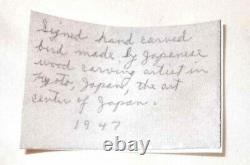 Signed hand carved
bird made by Japanese
wood carving artist in
Kyoto Japan, the art
center of Japan.
1947